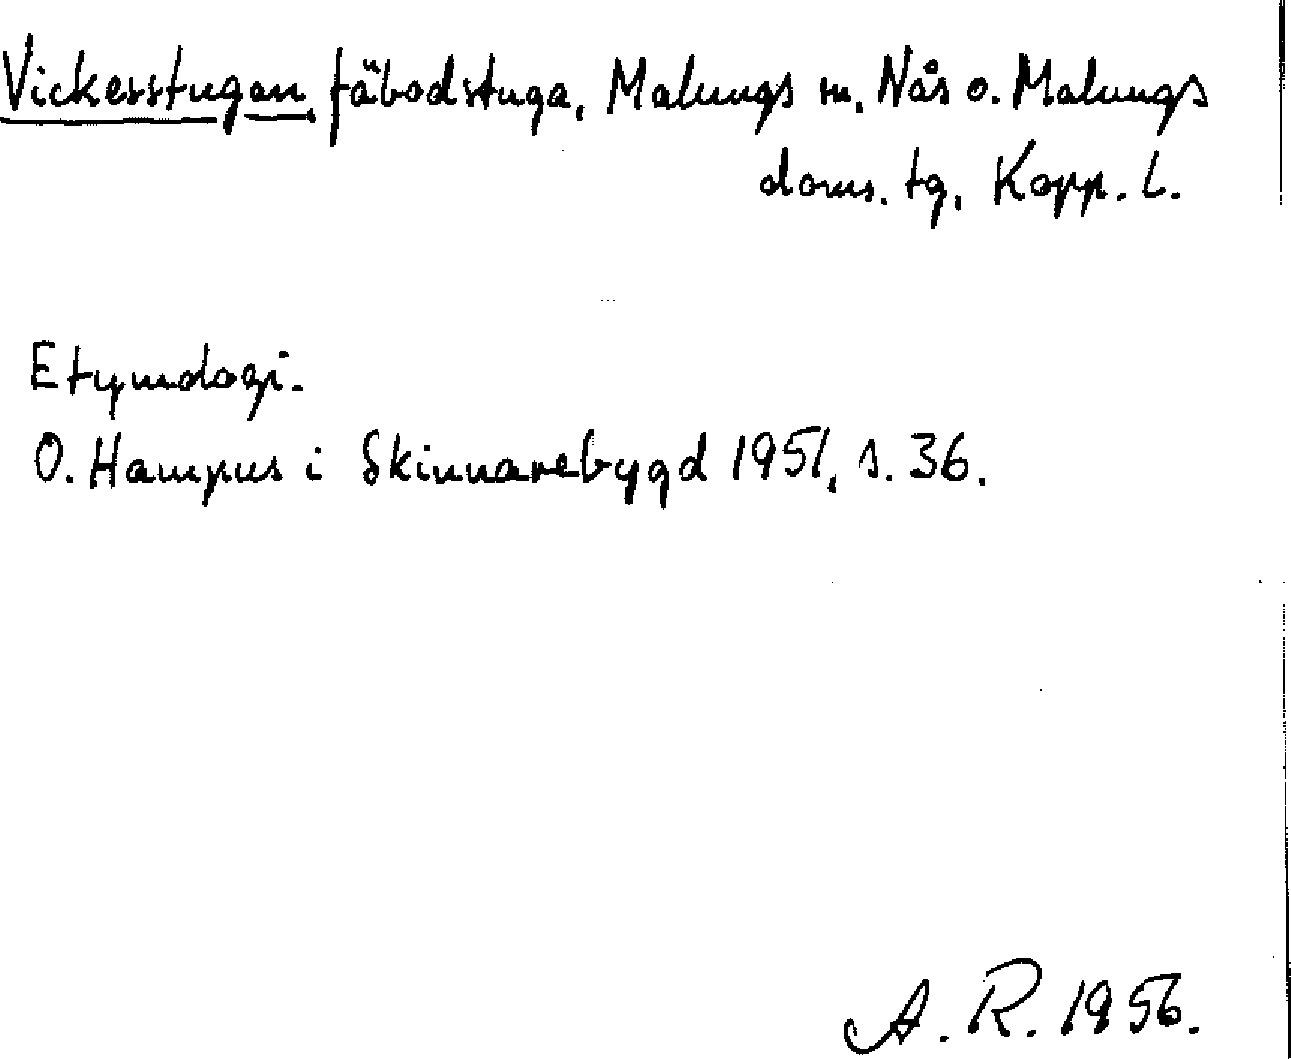 Vickersstugan, fäbodstuga, Malungs sn, Nås o. Malungs
doms. tg, Kopp. l.
Etymologi.
O. Hampus i Skinnarebygd 1951, s. 36.
A. R. 1956.